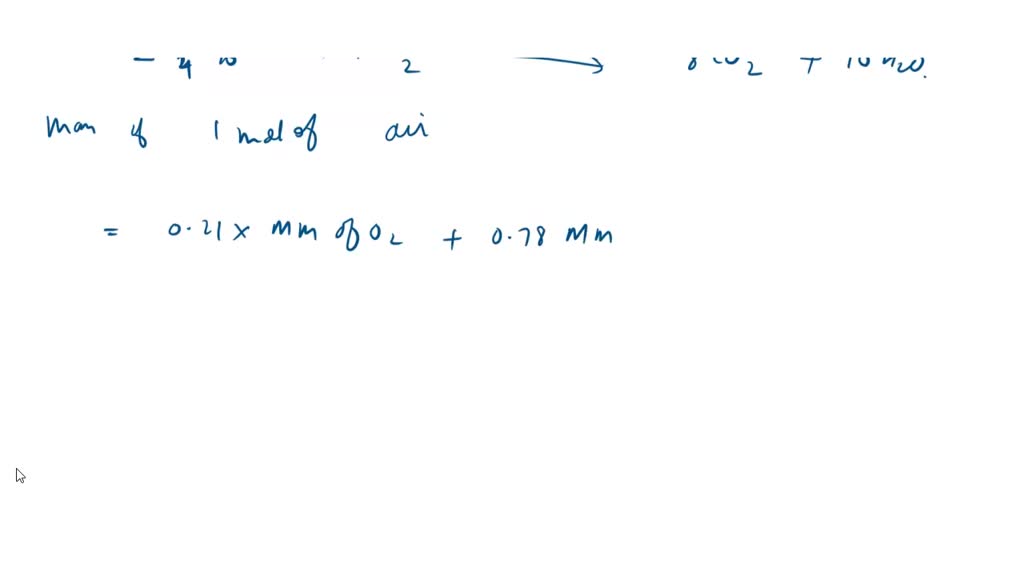 2 → 2 +
Mass of 1 mol of air
= 0.21 x MM of O2 + 0.78 MM